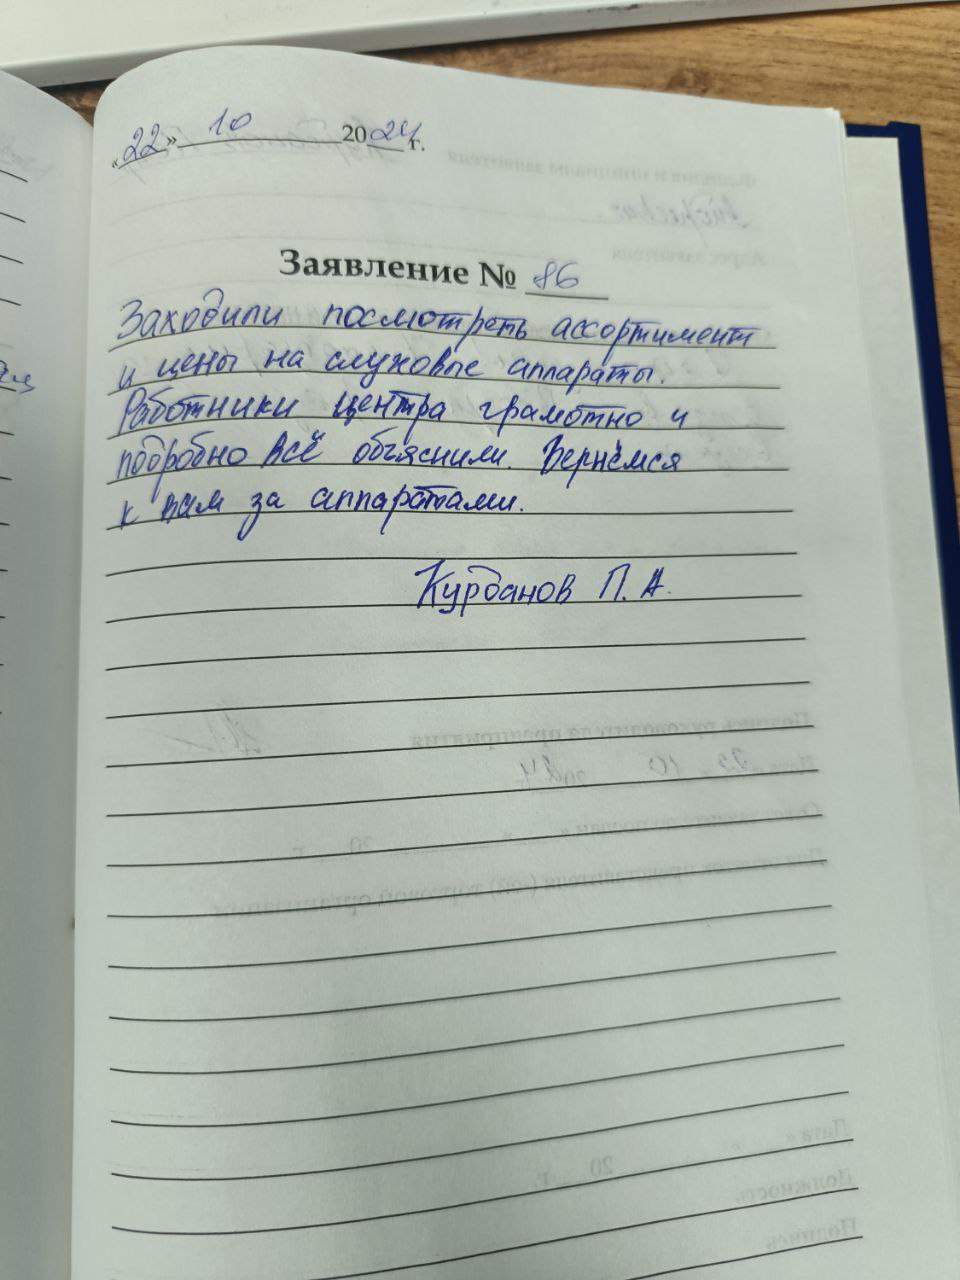 «22» 10 2024 г.
Заявление № 86
Заходили посмотреть ассортимент
и цены на слуховые аппараты.
Работники центра грамотно и
подробно всё объяснили. Вернёмся
к вам за аппаратами.
Курбанов П. А.